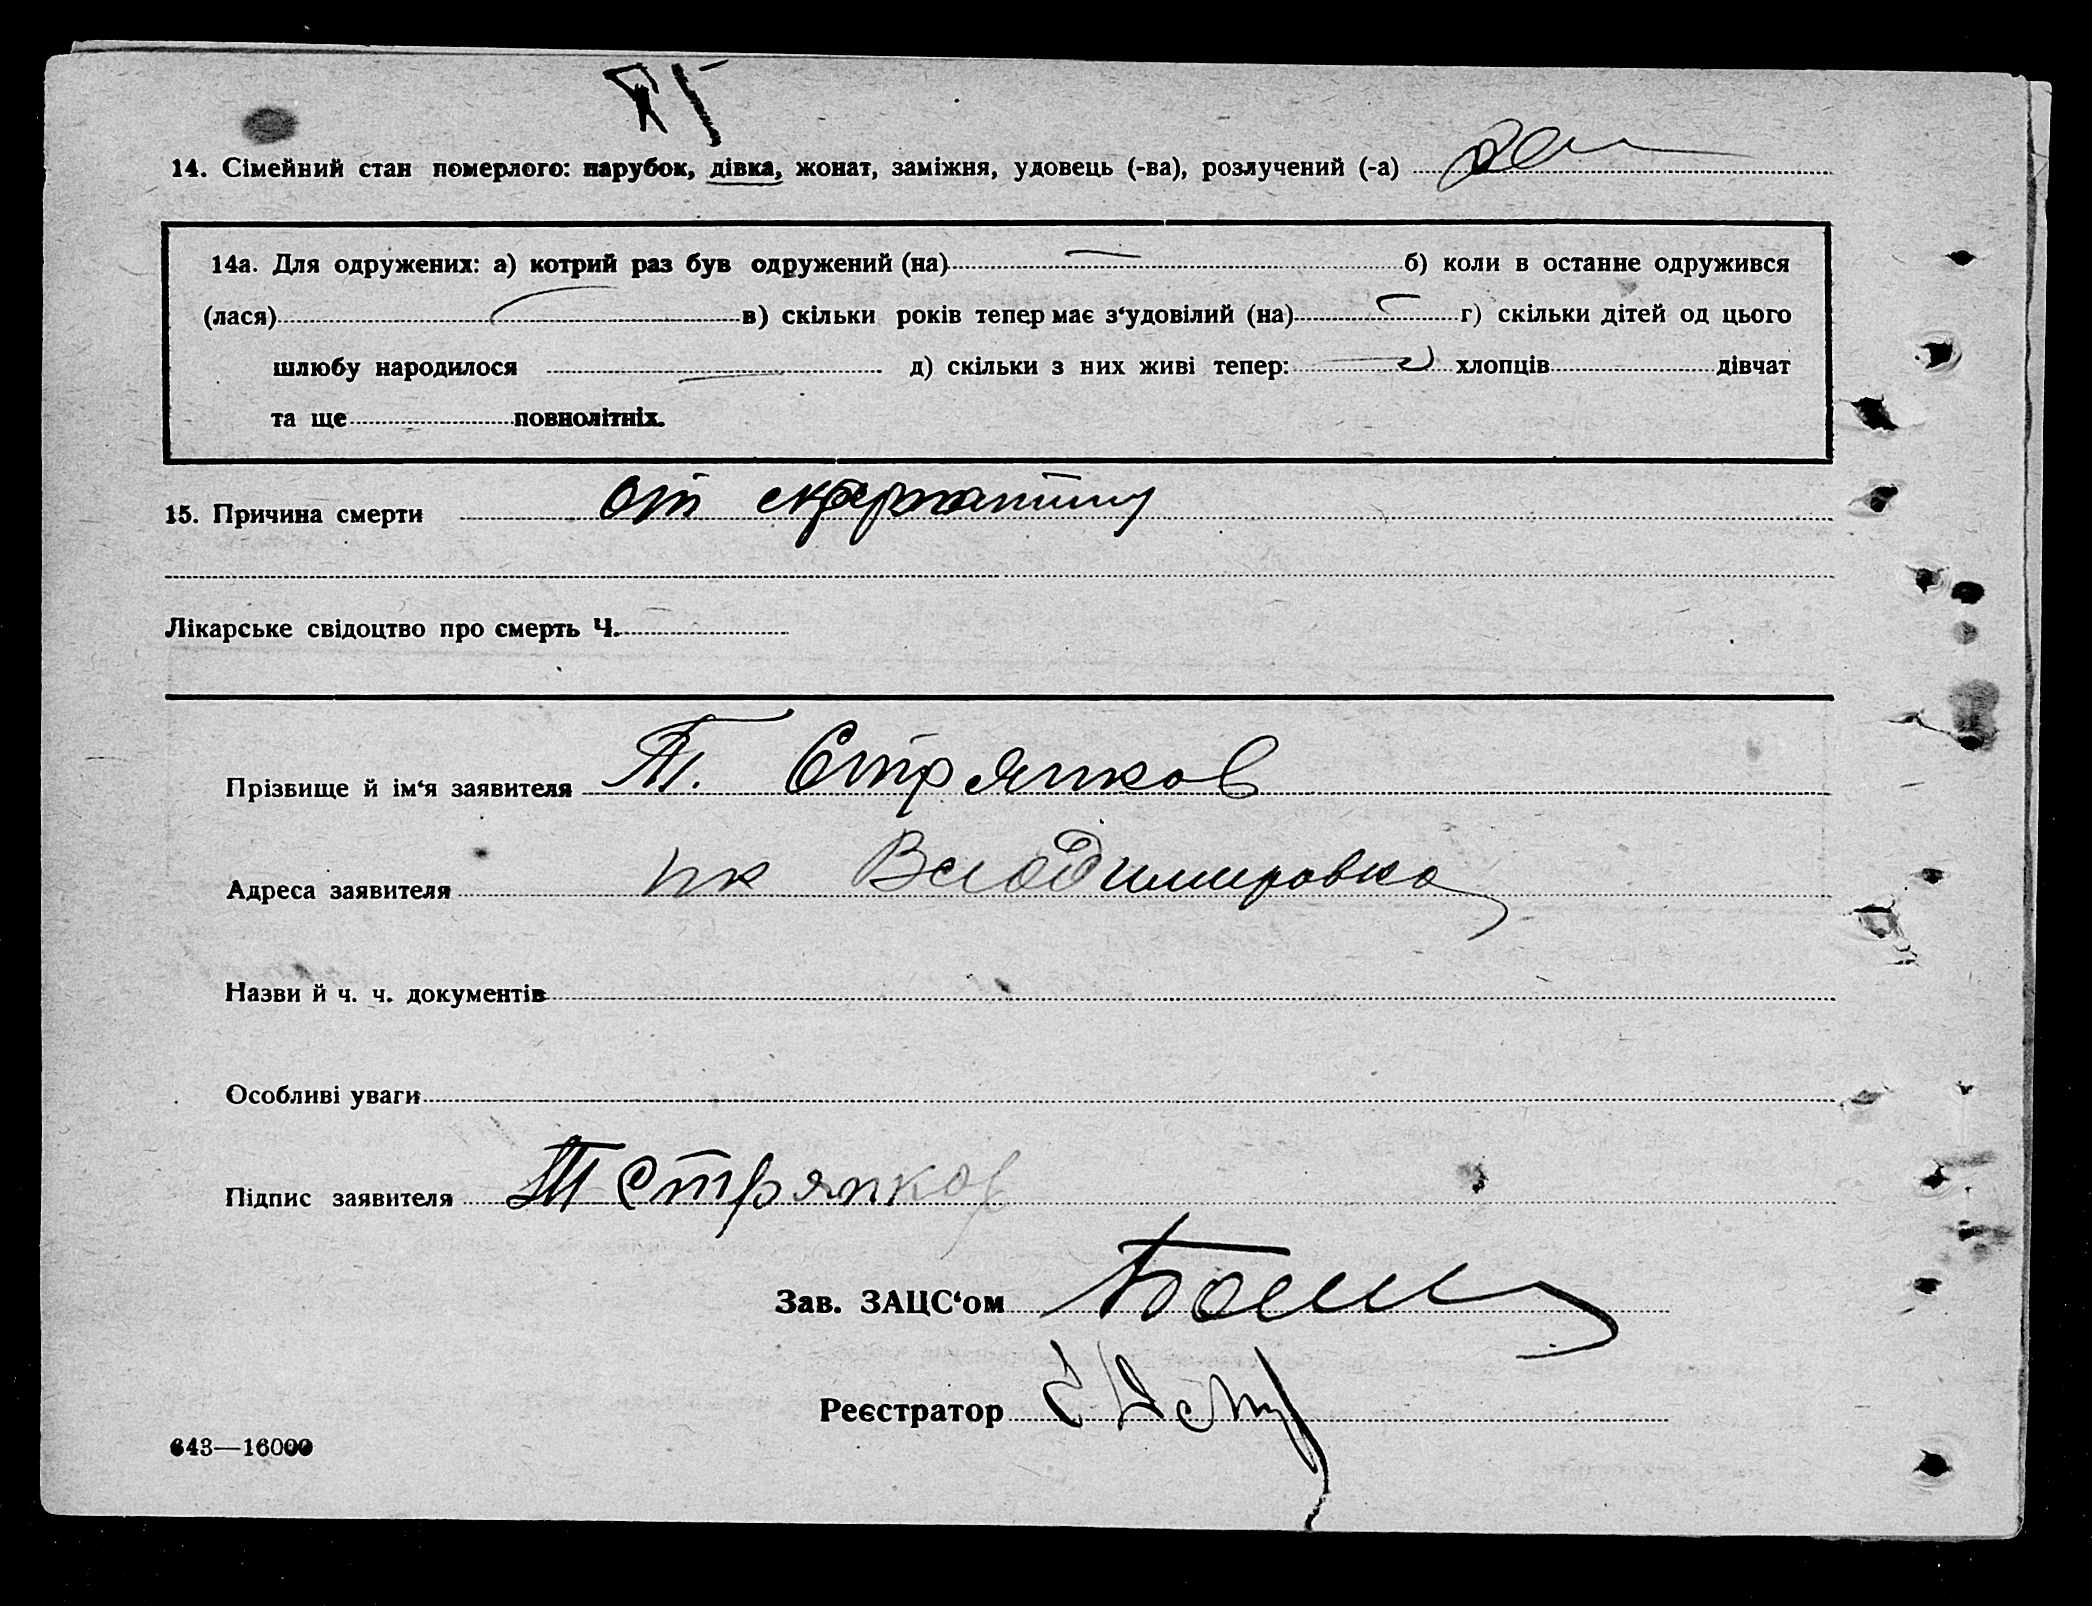 14. Сімейний стан померлого: парубок, дівка, жонат, заміжня, удовець (-ва), розлучений (-а)
14а. Для одружених: а) котрий раз був одружений (на) б) коли в останне одружився
(лася) в) скільки років тепер має з‘удовілий (на) г) скільки дітей од цього
шлюбу народилося д) скільки з них живі тепер: хлопців дівчат
та ще повнолітніх.
15. Причина смерти от скарлатины
Лікарське свідоцтво про смерть Ч.
Прізвище й ім‘я заявителя Т. Стряпков
Адреса заявителя нк Владимировка
Назви й ч. ч. документів
Особливі уваги
Підпис заявителя Т Стряпков
Зав. ЗАЦС‘ом
Реєстратор
643—16000